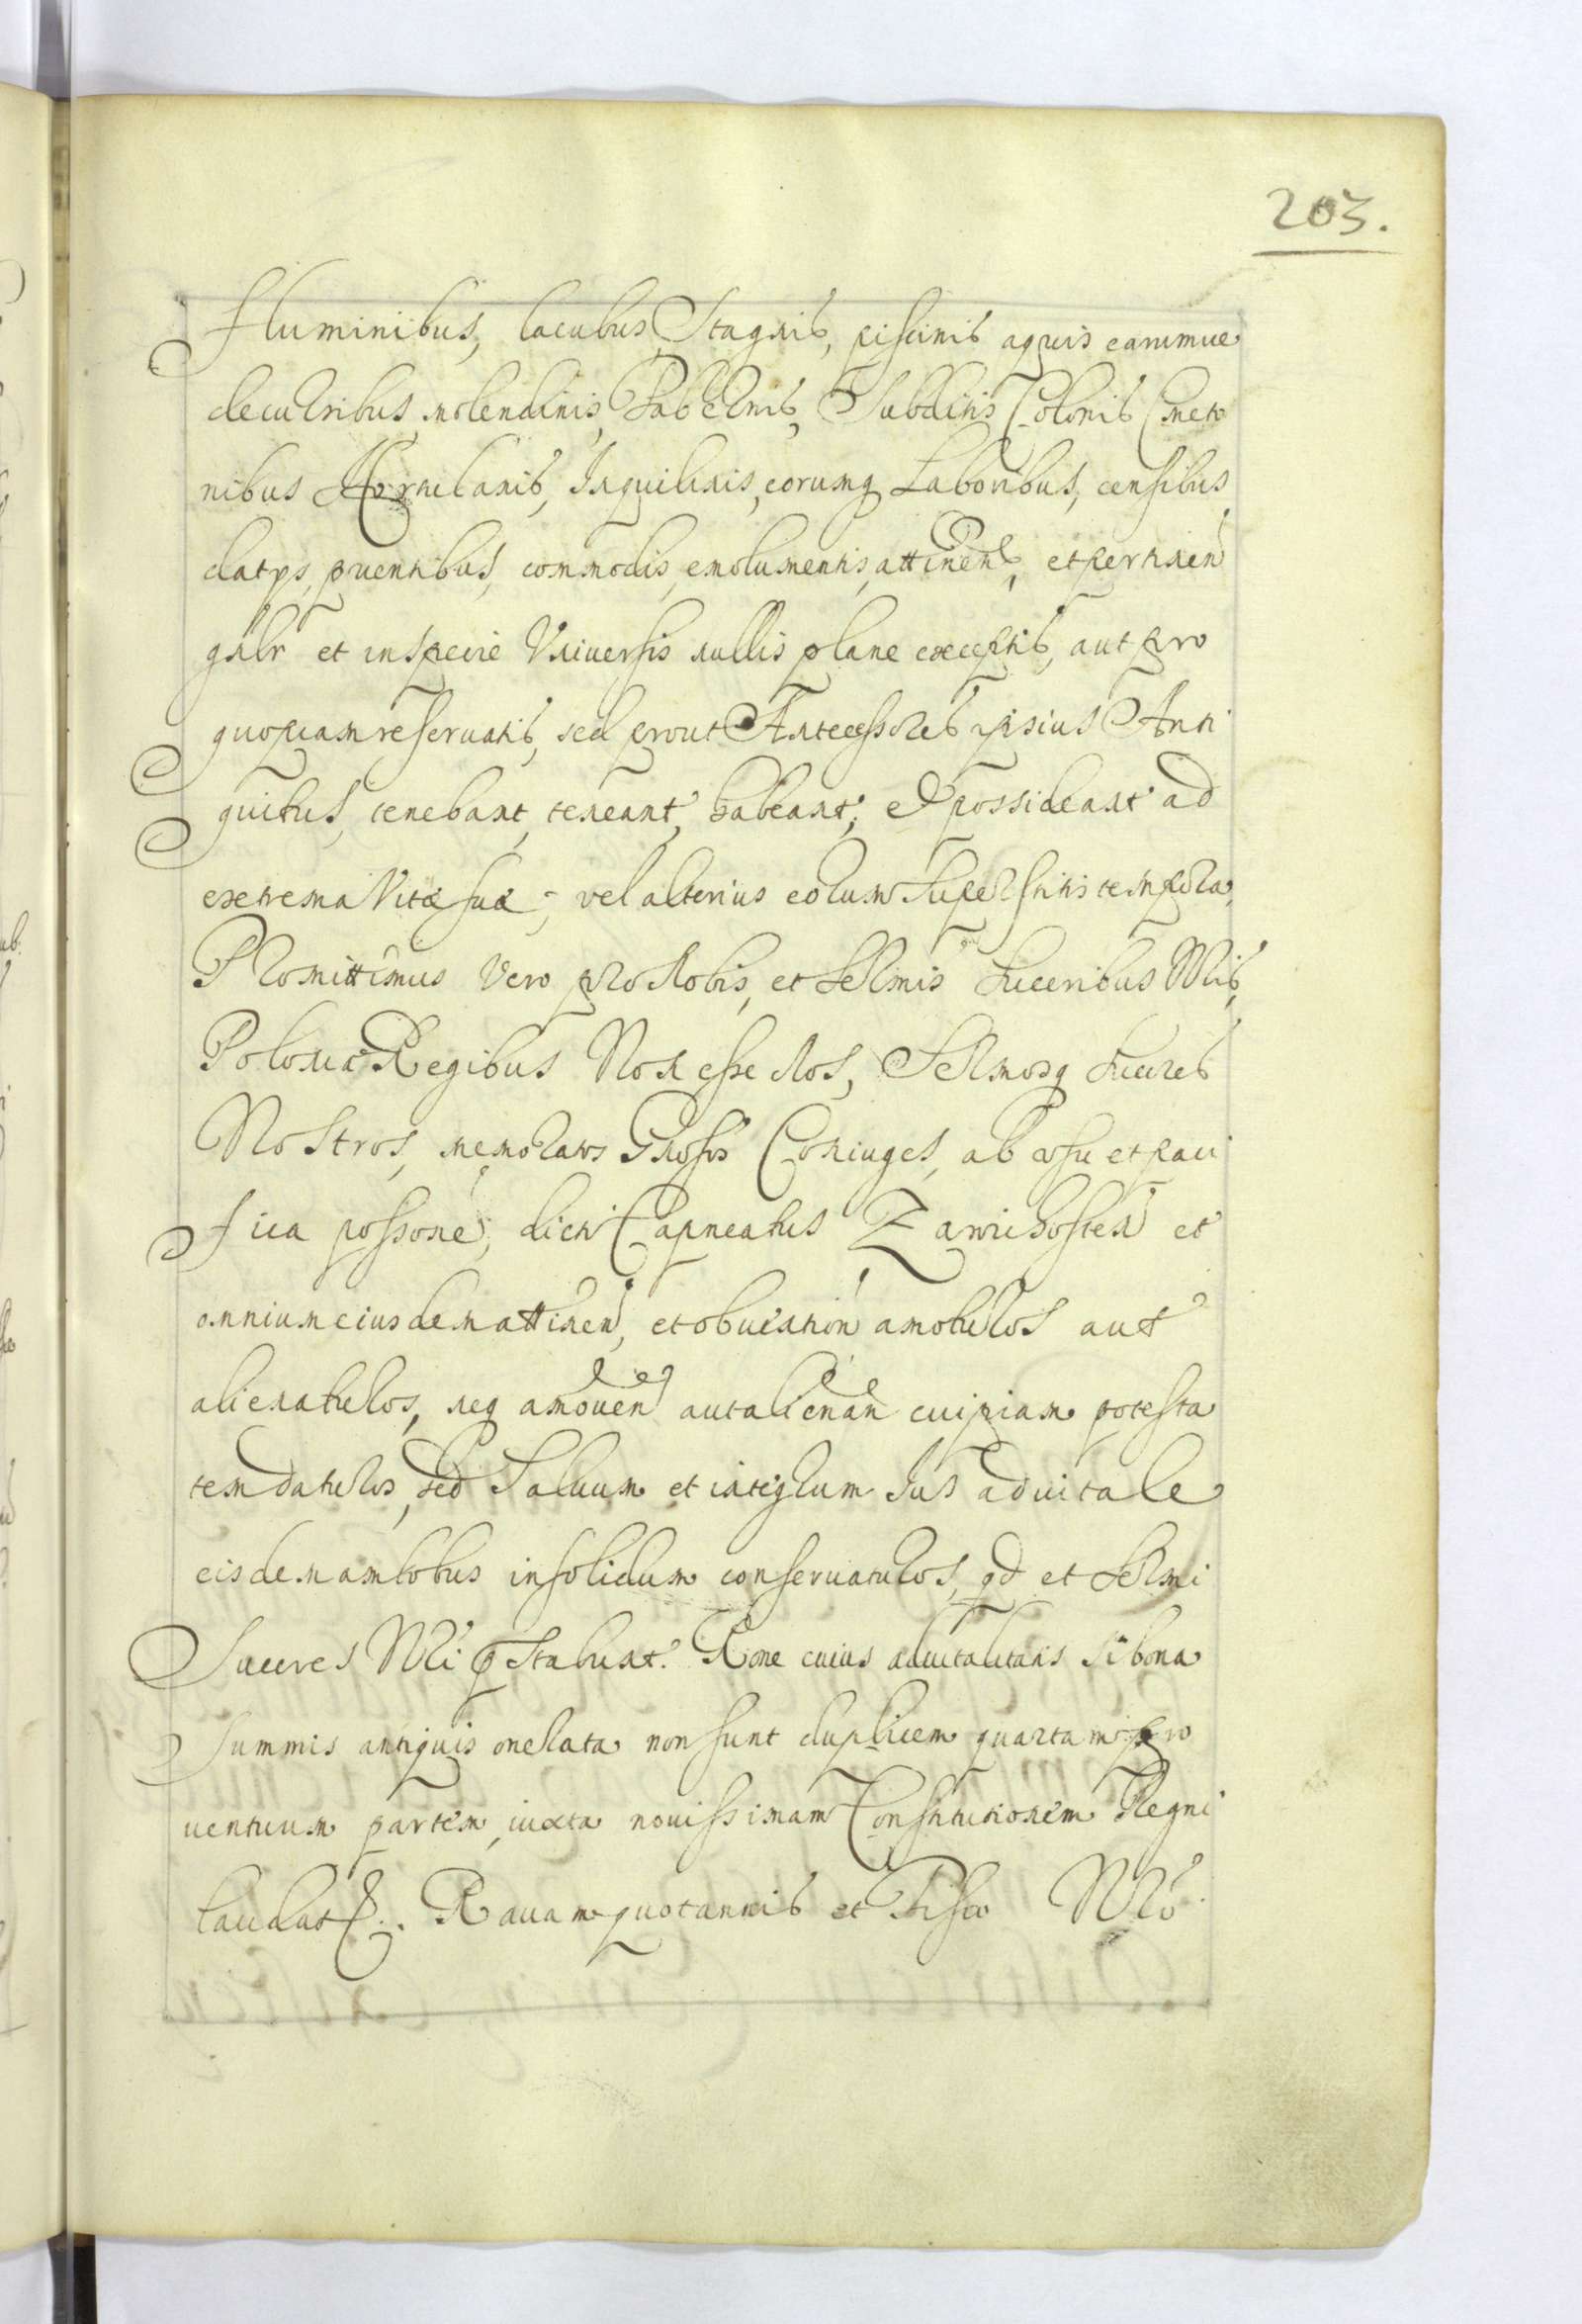 203.
Fluminibus, lacubus, Stagnis, piscinis aquis earumue
decursibus, molendinis, Tabernis, Subditis Colonis Cmeto
nibus Hortulanis, Inquilinis, eorumq Laboribus, censibus
datys, puentibus, commodis, emolumentis, attinen, et pertinen
gnlr et in specie Vniuersis nullis plane exceptis, aut pro
quopiam reseruatis, sed prout Antecessores ipsius Anti
quitus, tenebant, teneant, habeant, et possideant ad
extrema Vitæ suæ, vel alterius eorum Superstitis tempora,
Promittimus Vero pro Nobis, et Sermis Succribus Nris,
Poloniæ Regibus Non esse Nos, Sermosq Succres
Nostros, memoratos Gnosos Coniuges, ab vsu et paci
fica possone, dicti Capneatus Zawichosten et
omnium eiusdem attinen, et obuention amoturos aut
alienaturos, neq amouen aut alienan cuipiam potesta
tem daturos, sed Saluum et integrum Ius aduitale
eisdem ambobus in solidum conseruaturos, qd et Sermi
Succres Nri pstabunt. Rone cuius aduitalitatis si bona
Summis antiquis onerata non sunt duplicem quartam pro
uentuum partem, iuxta nouissimam Constitutionem Regni
laudat. Rauam quotannis et Fisco Nro